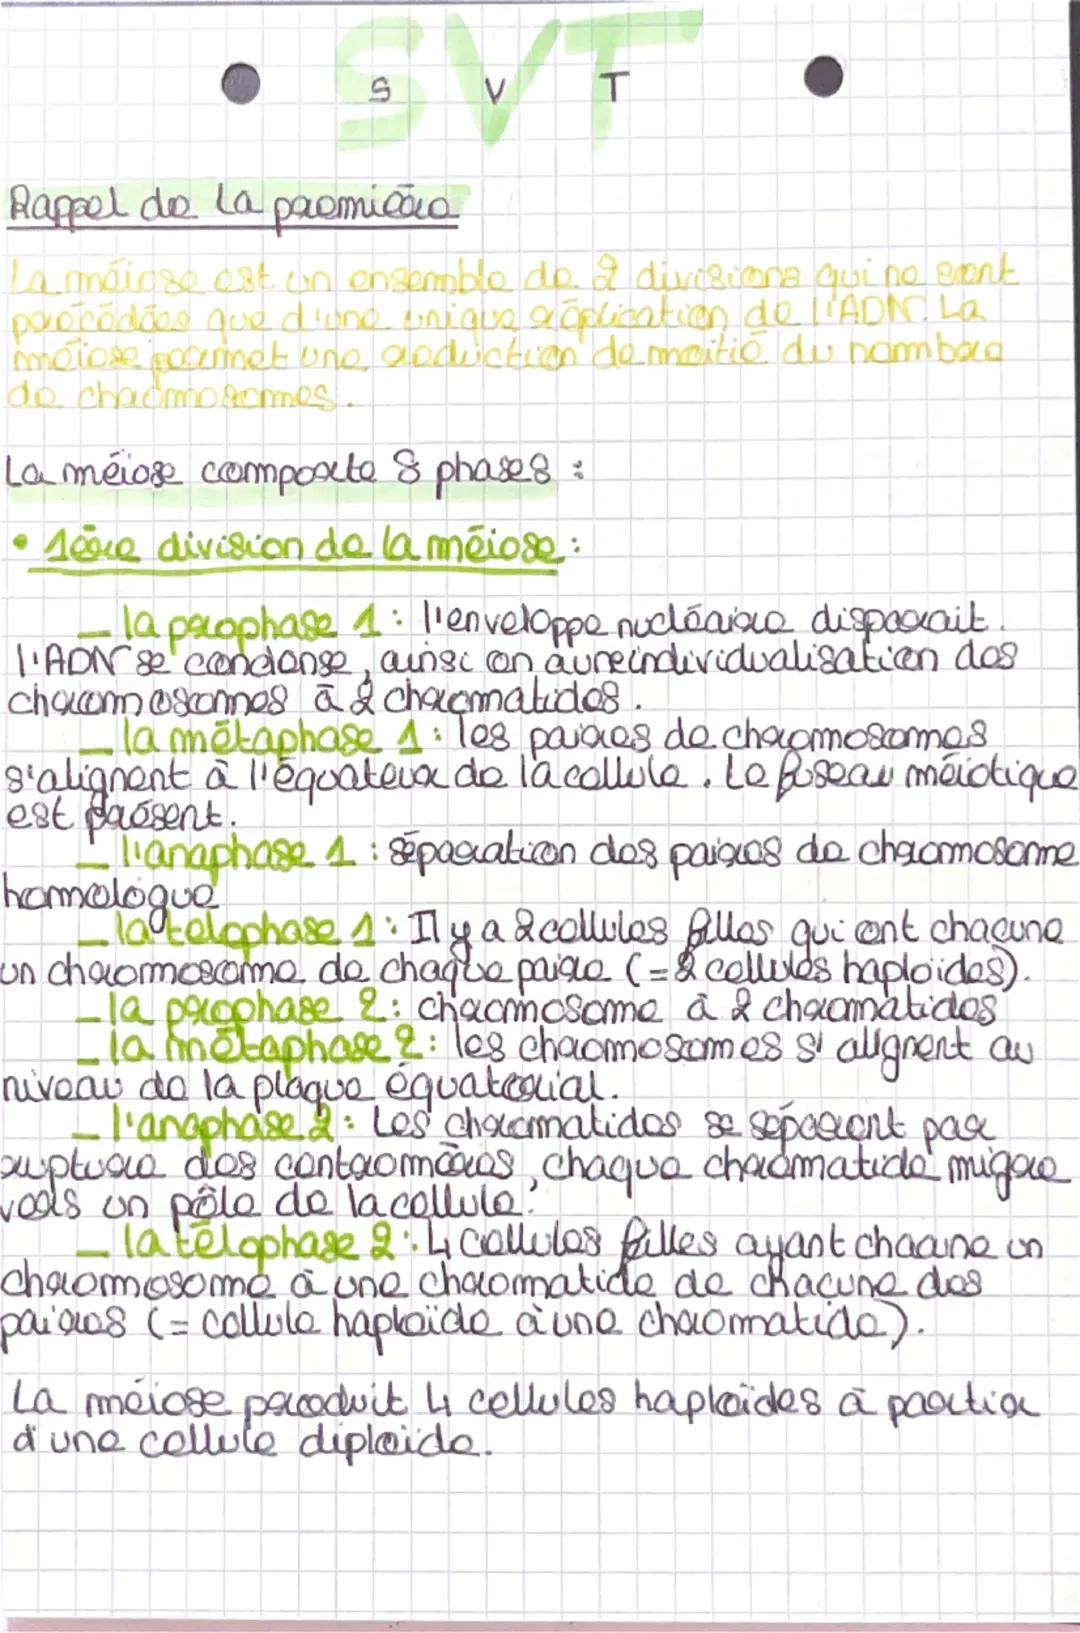 SVT
S V T
Rappel de la première
La méiose est un ensemble de 2 divisions qui ne sont
précédées que d'une unique réplication de l'ADN. La
méiose permet une réduction de moitié du nombre
de chromosomes.
La méiose comporte 8 phases :
• 1ère division de la méiose :
_ la prophase 1 : l'enveloppe nucléaire disparait.
l'ADN se condense, ainsi on a une individualisation des
chromosomes à 2 chromatides.
_ la métaphase 1 : les paires de chromosomes
s'alignent à l'équateur de la cellule. Le fuseau méiotique
est présent.
_ l'anaphase 1 : séparation des paires de chromosome
homologue
_ la télophase 1 : Il y a 2 cellules filles qui ont chacune
un chromosome de chaque paire (= 2 cellules haploïdes).
_ la prophase 2 : chromosome à 2 chromatides
_ la métaphase 2 : les chromosomes s'alignent au
niveau de la plaque équatorial.
_ l'anaphase 2 : Les chromatides se séparent par
rupture des centromères, chaque chromatide migre
vers un pôle de la cellule.
_ la télophase 2 : 4 cellules filles ayant chacune un
chromosome à une chromatide de chacune des
paires (= cellule haploïde à une chromatide).
La méiose produit 4 cellules haploïdes à partir
d'une cellule diploïde.